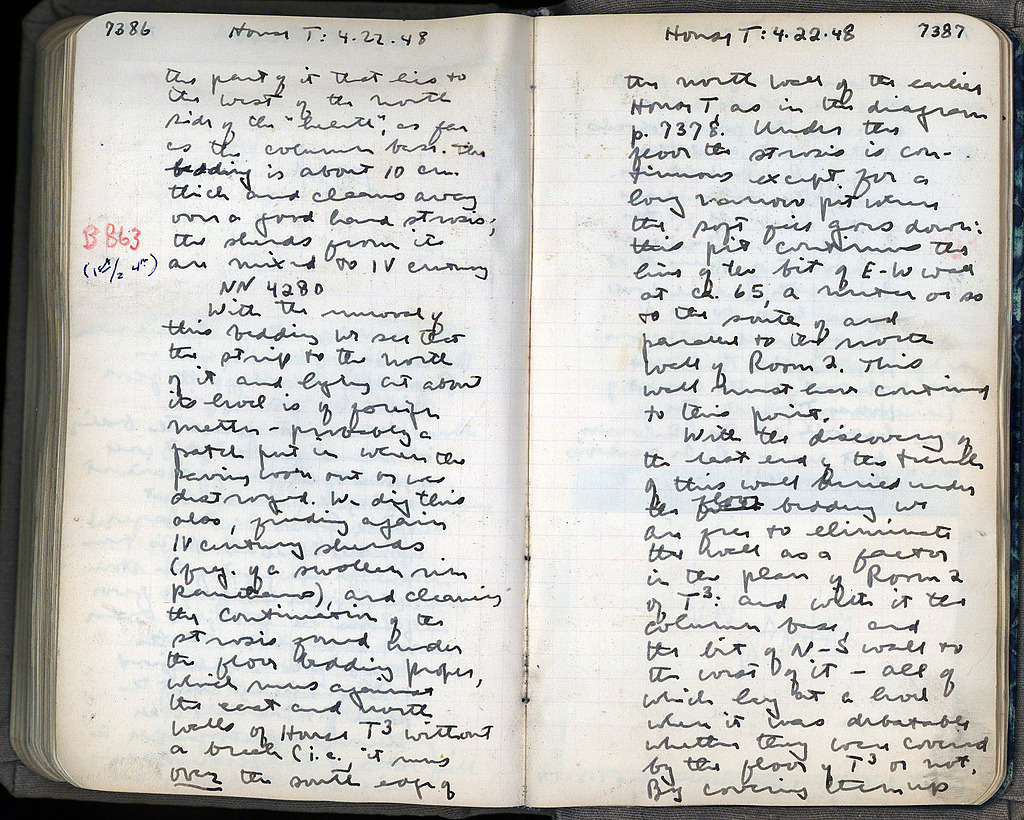 7386 House T: 4.22.48
the part of it that lies to
the west of the north
side of the "hearth", as far
as the column base. The
bedding is about 10 cm.
thick and cleans away
over a good hard strosis;
the sherds from it
B 863
(1st/2 4th)
are mixed to IV century
NN 4280
With the removal of
this bedding we see that
the strip to the north
of it and lying at about
its level is of foreign
matter - probably a
patch put in where the
paving wore out or was
destroyed. We dig this
also, finding again
IV century sherds
(frg. of a swollen rim
kantharos), and cleaning
the continuation of the
strosis found under
the floor bedding proper,
which runs against
the east and north
walls of House T3 without
a break (i.e., it runs
over the south edge of
House T: 4.22.48 7387
the north wall of the earlier
House T as in the diagram
p. 7378. Under the
floor the strosis is con-
tinuous except for a
long narrow pit where
the soft fill goes down:
this pit continues the
line of the bit of E-W wall
at ca. 65, a meter or so
to the south of and
parallel to the north
wall of Room 2. This
wall must have continued
to this point.
With the discovery of
the last end of the trench
of this wall buried under
the floor bedding we
are free to eliminate
the wall as a factor
in the plan of Room 2
of T3: and with it the
column base and
the bit of N-S wall to
the west of it - all of
which lay at a level
where it was debatable
whether they were covered
by the floor of T3 or not.
By covering them up